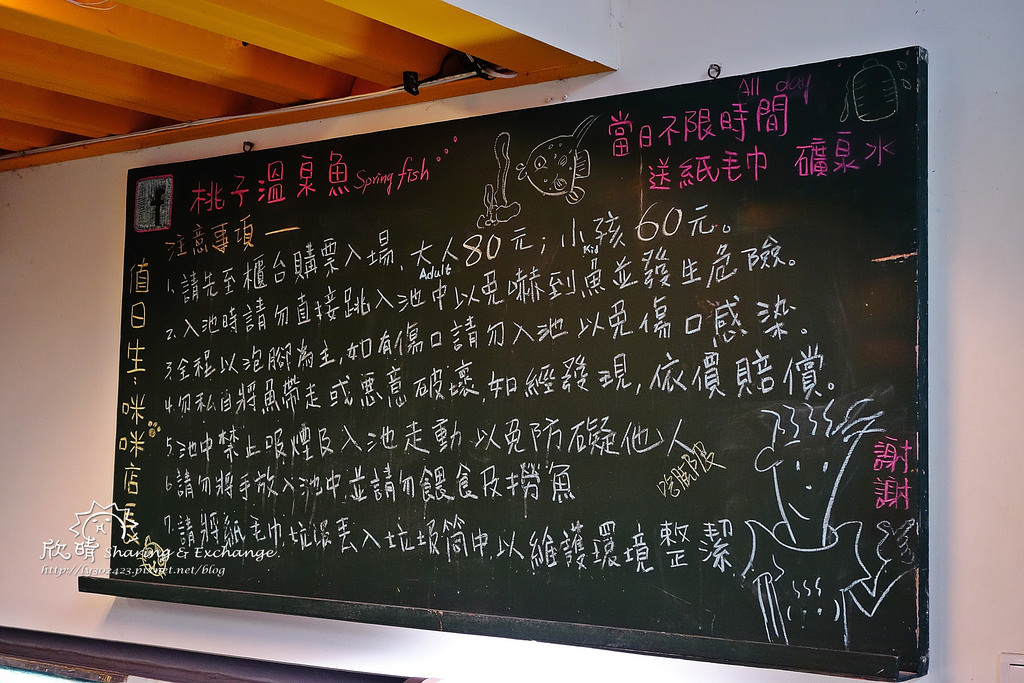 All day
當日不限時間
送紙毛巾 礦泉水
桃子溫泉魚 Spring fish
注意事項一
1.請先至櫃台購票入場,大人80元;小孩60元。
Adult Kid
2.入池時請勿直接跳入池中以免嚇到魚並發生危險。
3.全程以泡腳為主,如有傷口請勿入池以免傷口感染。
4.勿私自將魚帶走或惡意破壞,如經發現,依價賠償。
5.池中禁止吸煙及入池走動以免防礙他人
6.請勿將手放入池中,並請勿餵食及撈魚
7.請將紙毛巾垃圾丟入垃圾筒中,以維護環境整潔
謝謝
值日生:咪咪店長
欣晴 Sharing & Exchange.
http://ly302423.pixnet.net/blog